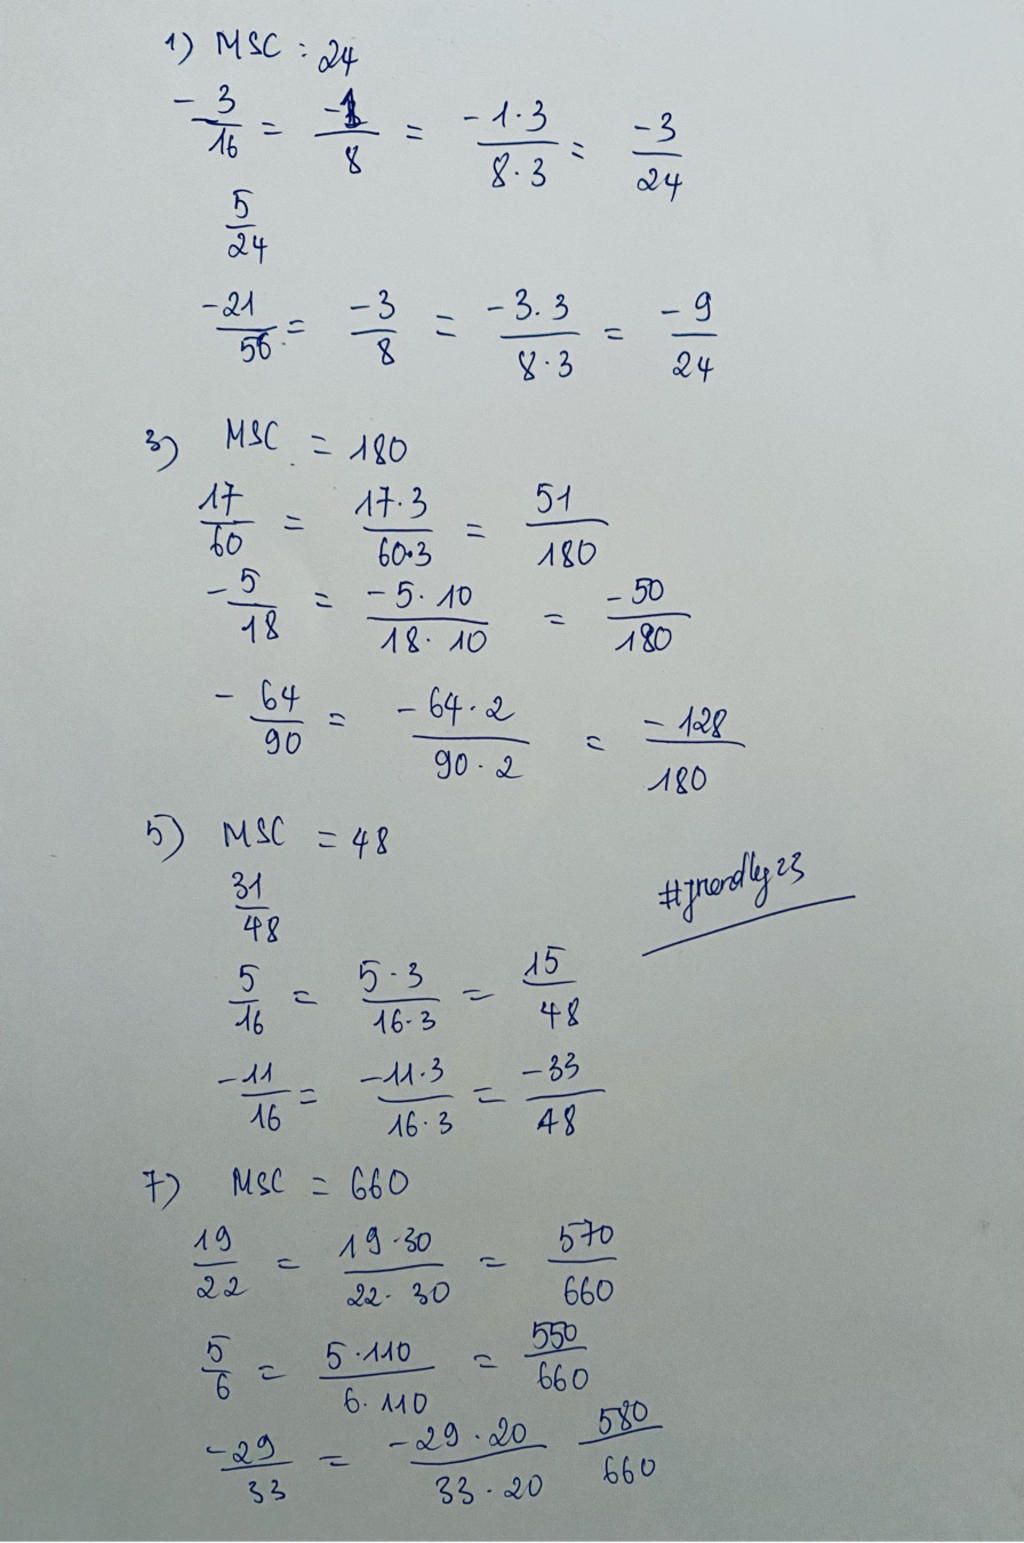 1) MSC : 24
-3/16 = -1/8 = -1·3/8·3 = -3/24
5/24
-21/56 = -3/8 = -3.3/8·3 = -9/24
3) MSC = 180
17/60 = 17·3/60·3 = 51/180
-5/18 = -5·10/18·10 = -50/180
-64/90 = -64·2/90·2 = -128/180
5) MSC = 48
31/48
#jnerdly23
5/16 = 5·3/16·3 = 15/48
-11/16 = -11·3/16·3 = -33/48
7) MSC = 660
19/22 = 19·30/22·30 = 570/660
5/6 = 5·110/6·110 = 550/660
-29/33 = -29·20/33·20 580/660